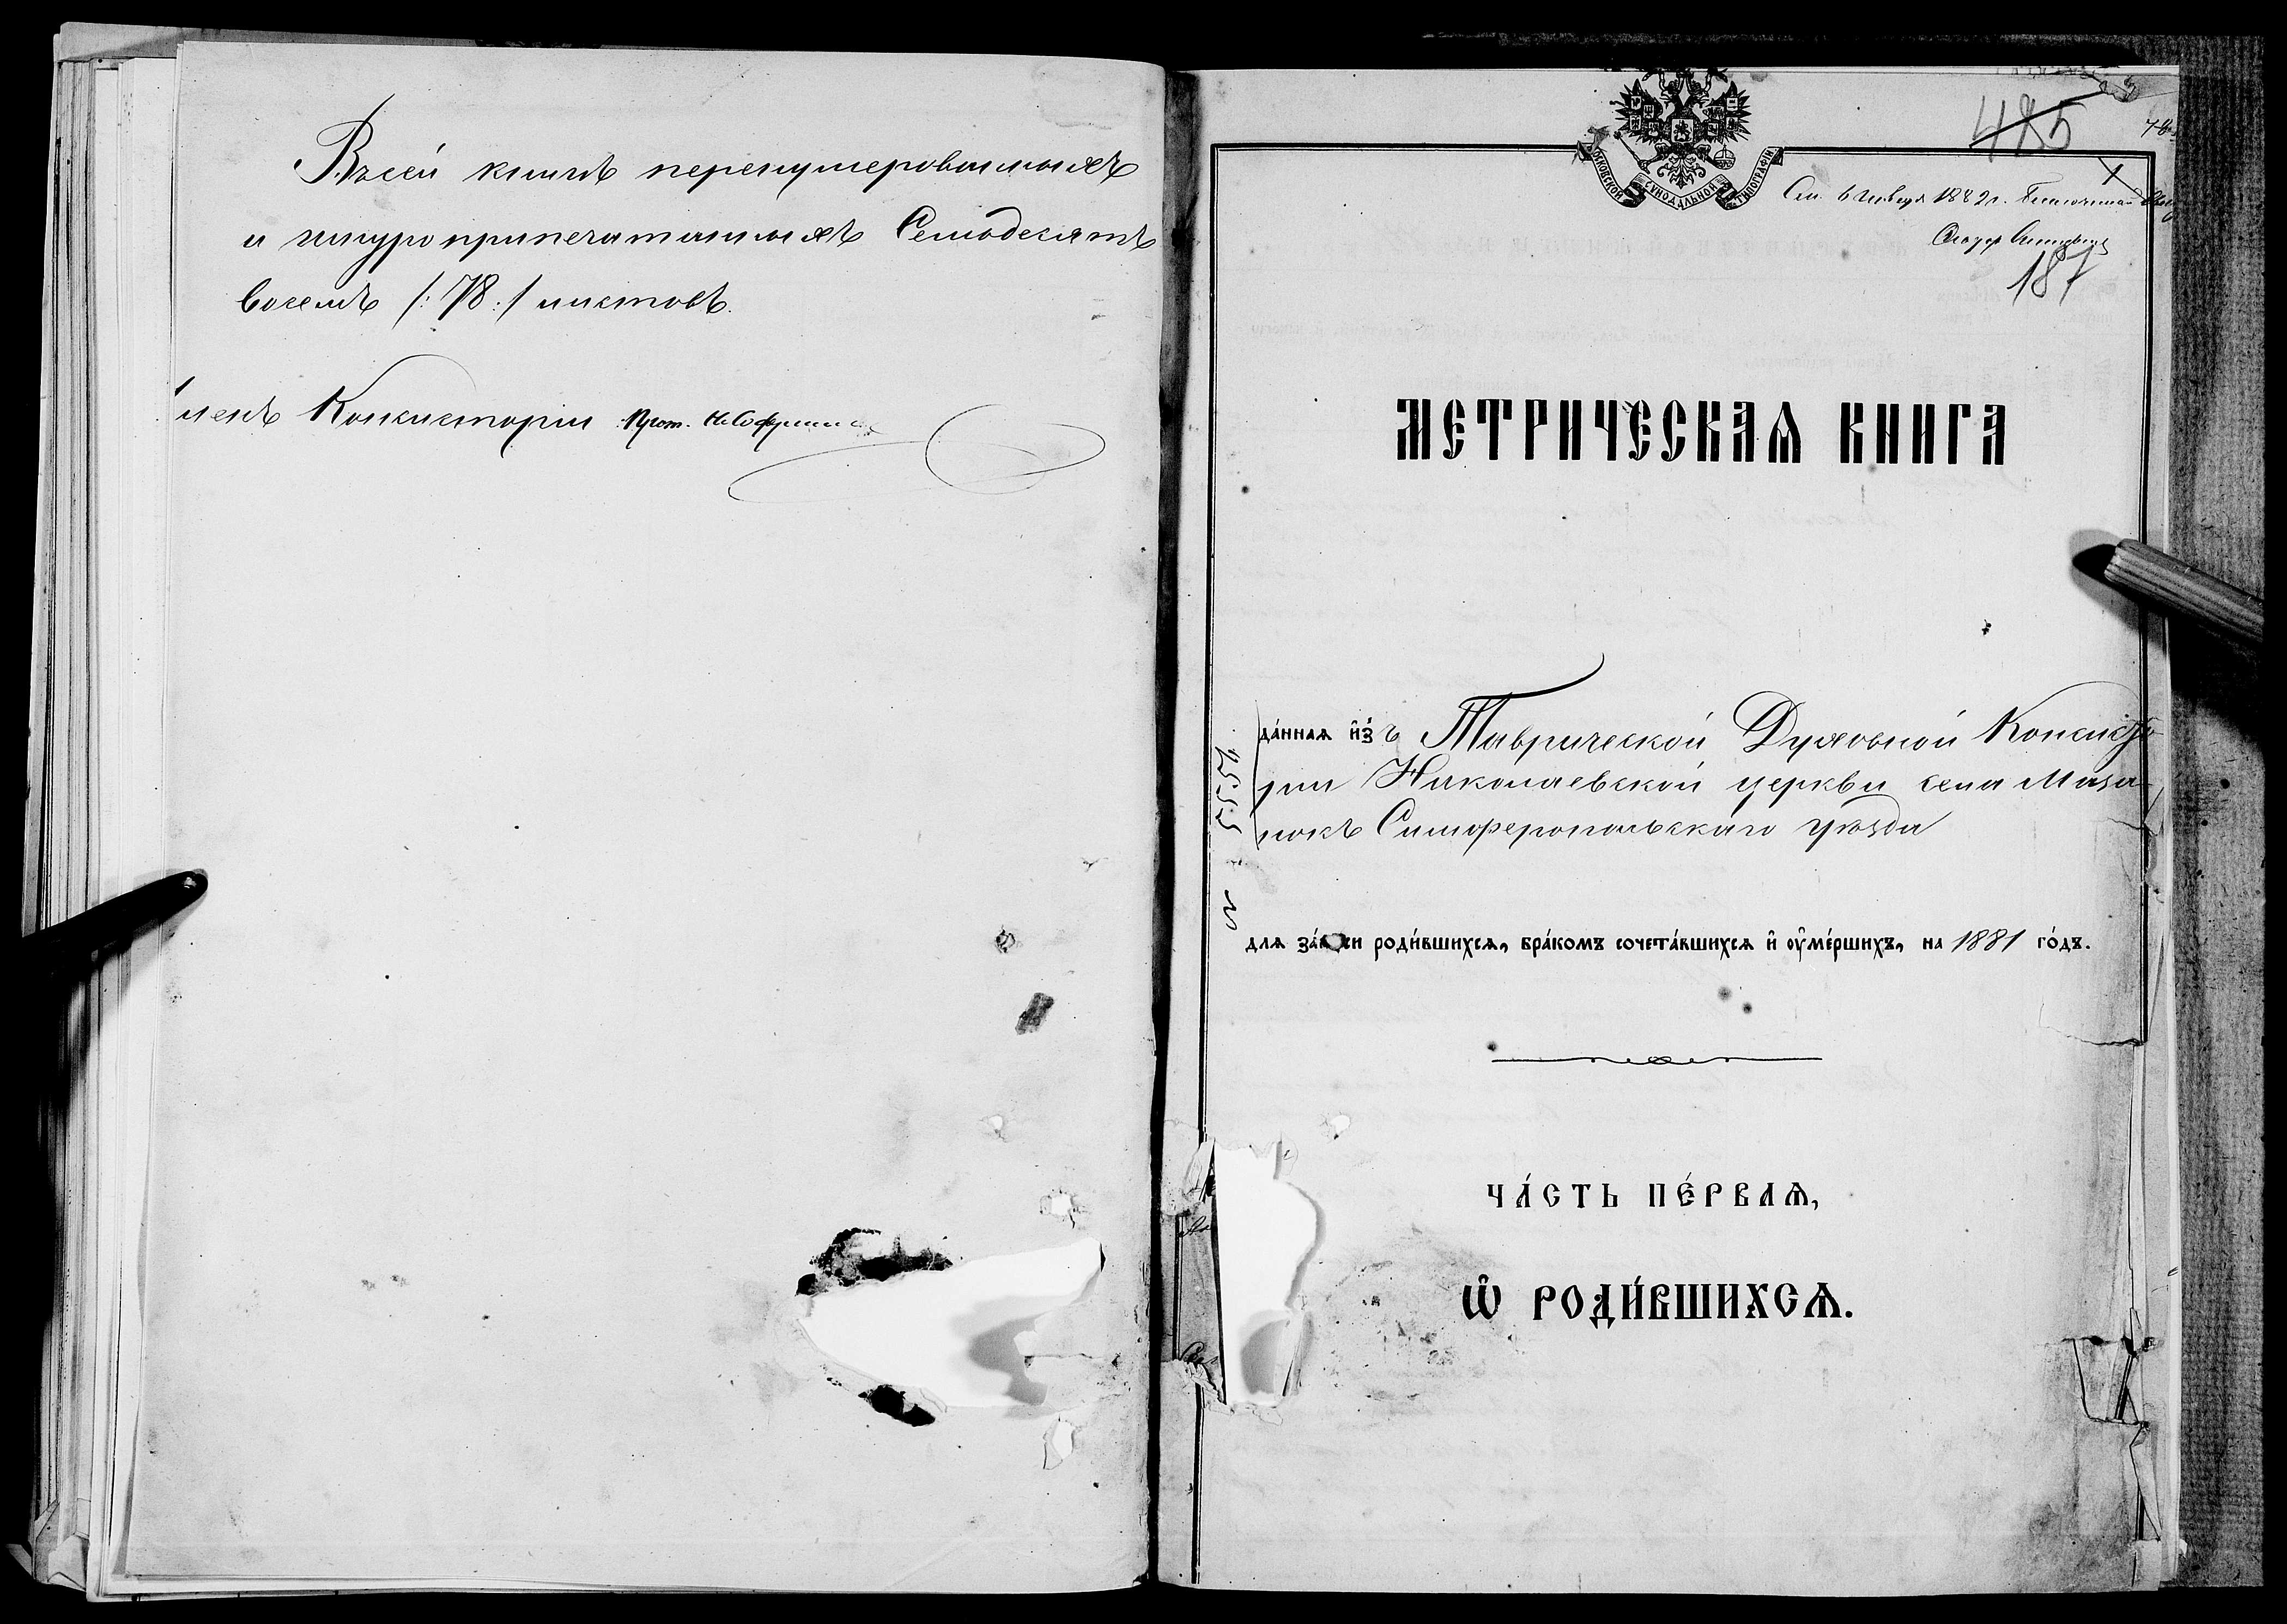 Въ сей книгѣ перенумерованныхъ
и шнуроприпечатанныхъ Семьдесятъ
восемь /: 78 :/ листовъ.
Членъ Консисторіи Прот.
485
МОСКОВСКОЙ СѴНОДАЛЬНОЙ ТИПОГРАФІИ
1882 г. Благочинный
187
МЕТРИЧЕСКАѦ КНИГА
да́ннаѧ и҆́зъ Таврической Духовной Консисто
ріи Николаевской церкви села Маза
нокъ Симферопольскаго уѣзда
для за́писи роди́вшихсѧ, бра́комъ сочета́вшихсѧ и҆ ᲂу҆ме́ршихъ, на 1881 го́дъ.
ЧА́СТЬ ПЕ́РВАѦ,
Ѡ҆ РОДИ́ВШИХСѦ.